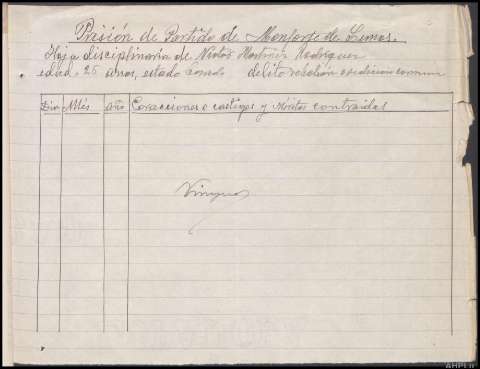 Prisión de Partido de Monforte de Lemos.
Hoja disciplinaria de Martínez Rodríguez
edad 25 años, estado delito rebelión condición comun
Dia Mes año Correcciones o castigos y Notas contraidas
Ninguno